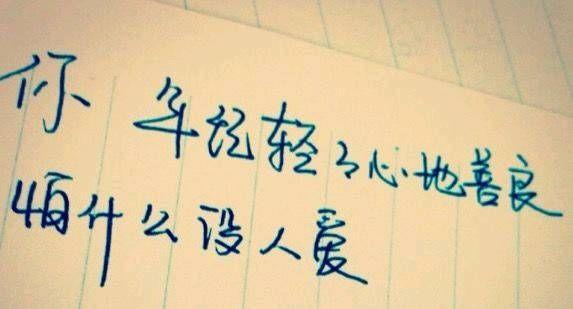 你 年纪轻々心地善良
怕什么没人爱